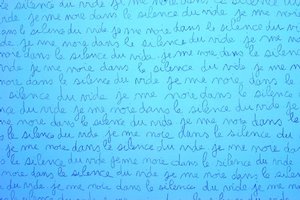 silence du vide je me noie dans le silence du vide
du vide je me noie dans le silence du vide je me noie
dans le silence du vide je me noie dans le silence du
vide je me noie dans le silence du vide je me noie
silence du vide je me noie dans le silence du vide je me
noie dans le silence du vide je me noie, dans le
silence du vide je me noie dans le silence
du vide je me noie dans le silence du vide je
me noie dans le silence du vide je me noie dans
le silence du vide je me noie dans le silence du
je me noie dans le silence du vide je me noie dans
le silence du vide je me noie dans le silence du vide
me noie dans le silence du vide je me noie dans le silence
du vide je me noie dans le silence du vide je me noie